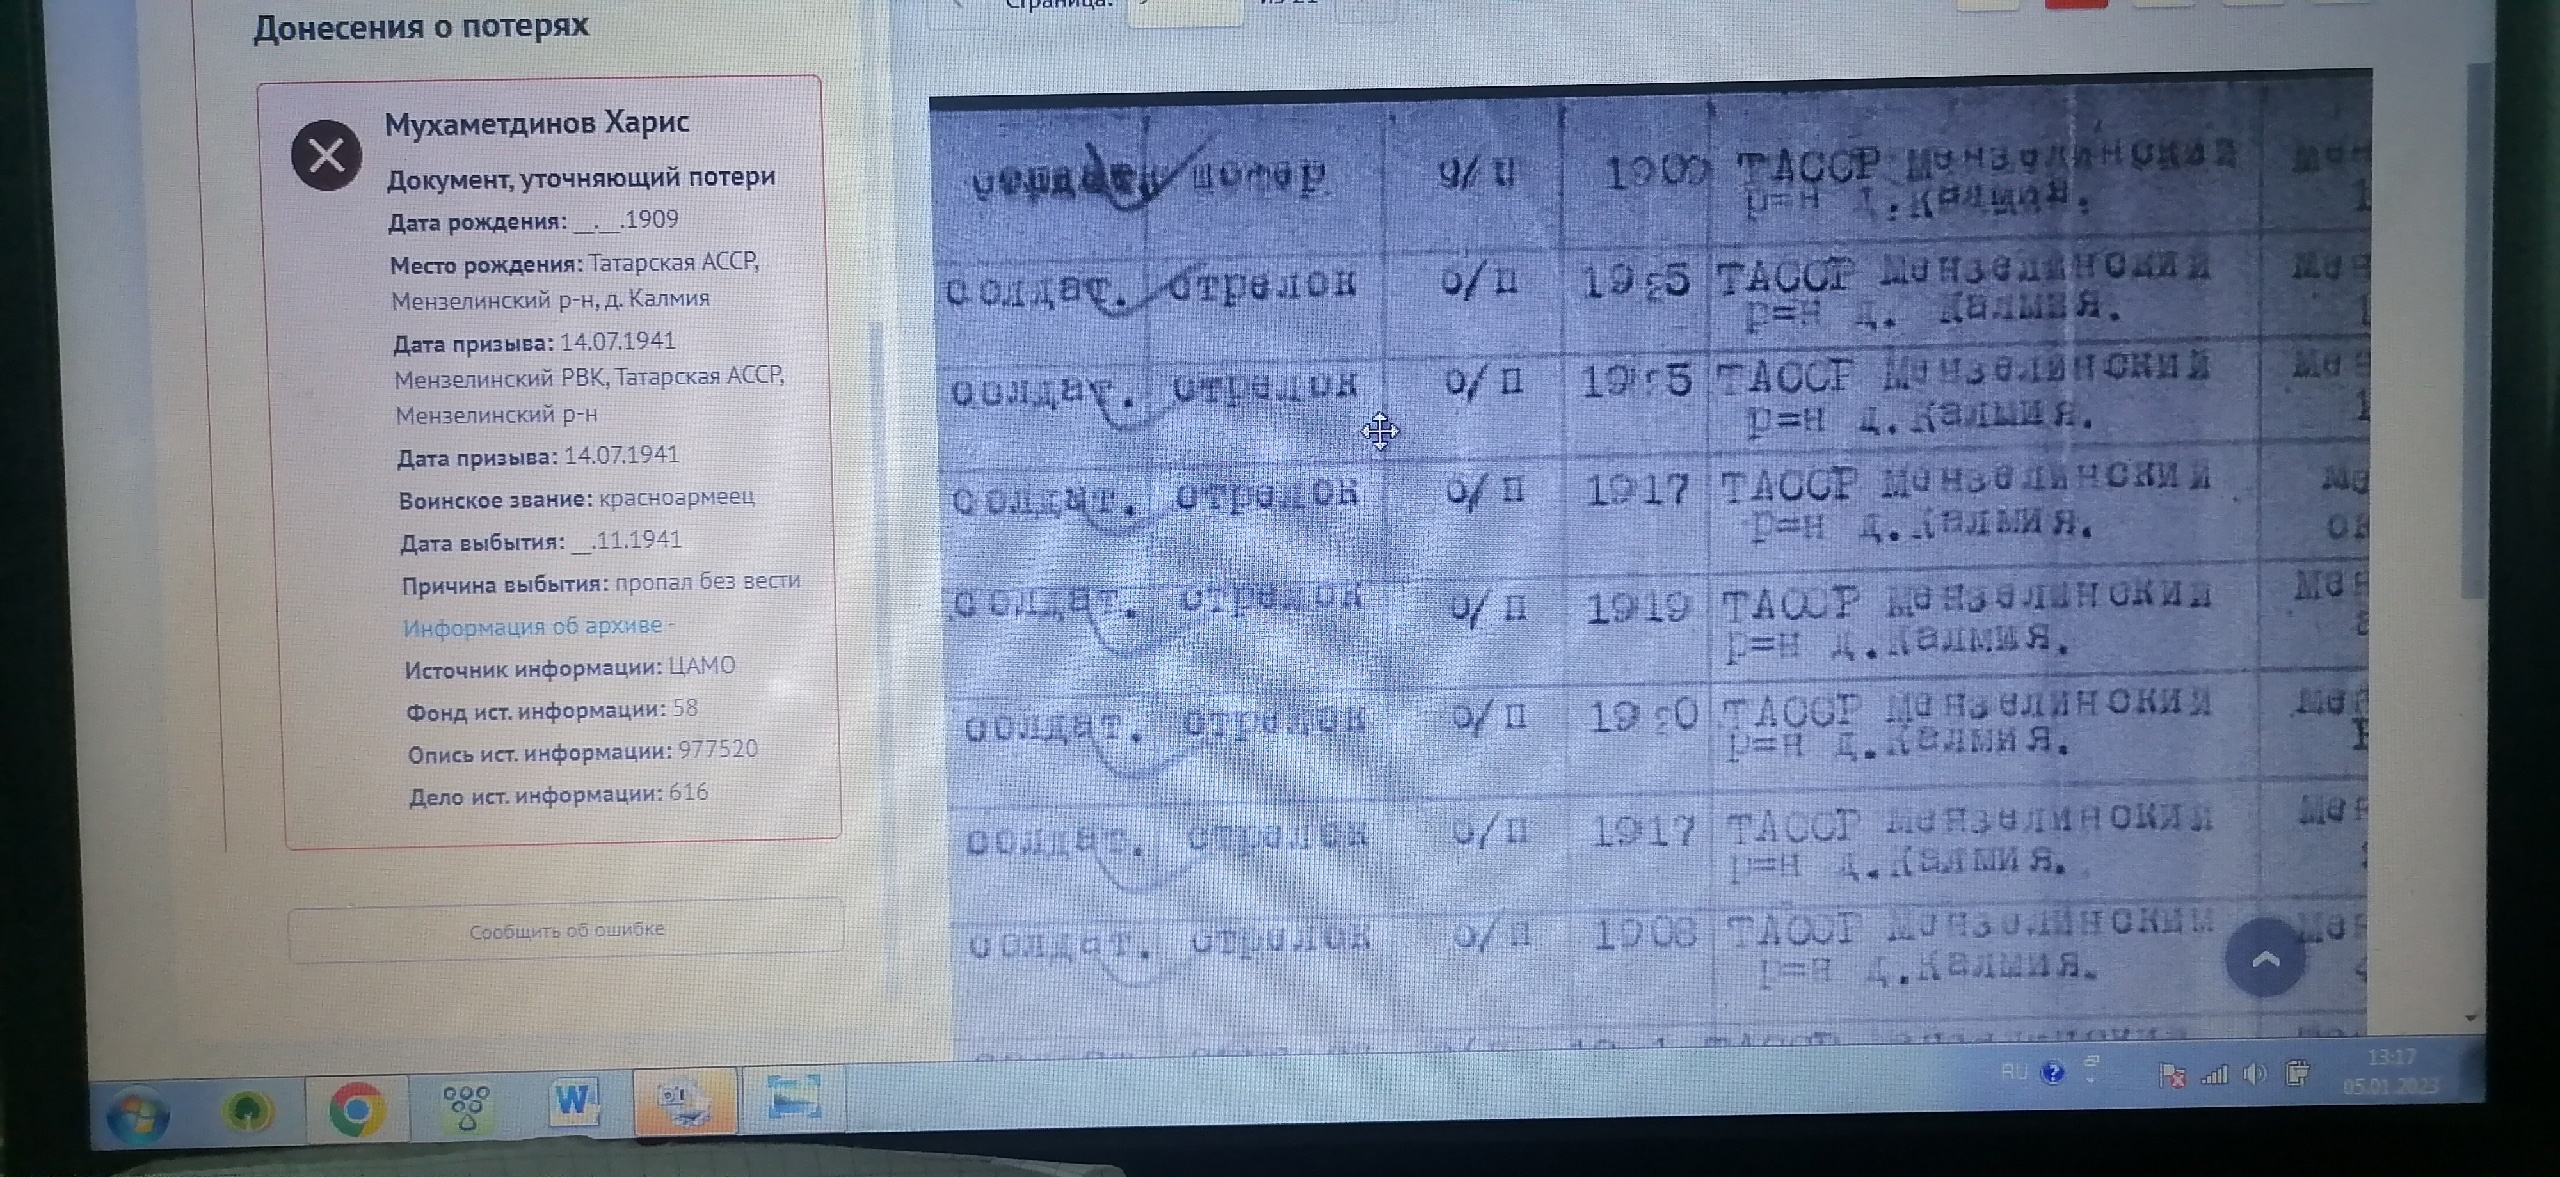 Страница: из 21
Донесения о потерях
Мухаметдинов Харис
Документ, уточняющий потери
Дата рождения: __.__.1909
Место рождения: Татарская АССР,
Мензелинский р-н, д. Калмия
Дата призыва: 14.07.1941
Мензелинский РВК, Татарская АССР,
Мензелинский р-н
Дата призыва: 14.07.1941
Воинское звание: красноармеец
Дата выбытия: __.11.1941
Причина выбытия: пропал без вести
Информация об архиве -
Источник информации: ЦАМО
Фонд ист. информации: 58
Опись ист. информации: 977520
Дело ист. информации: 616
Сообщить об ошибке
шофер б/п 1909 ТАССР Мензелинский
р=н д.Калмия.
солдат. стрелок б/п ТАССР Мензелинский
р=н д. Калмия.
солдат. стрелок б/п ТАССР Мензелинский
р=н д.Калмия.
солдат. стрелок б/п 1917 ТАССР Мензелинский
р=н д.Калмия.
солдат. стрелок б/п 1919 ТАССР Мензелинский
р=н д.Калмия.
солдат. стрелок б/п ТАССР Мензелинский
р=н д.Калмия.
солдат. стрелок б/п 1917 ТАССР Мензелинский
р=н д.Калмия.
солдат. стрелок б/п 1908 ТАССР Мензелинский
р=н д.Калмия.
RU
13:17
05.01.2023